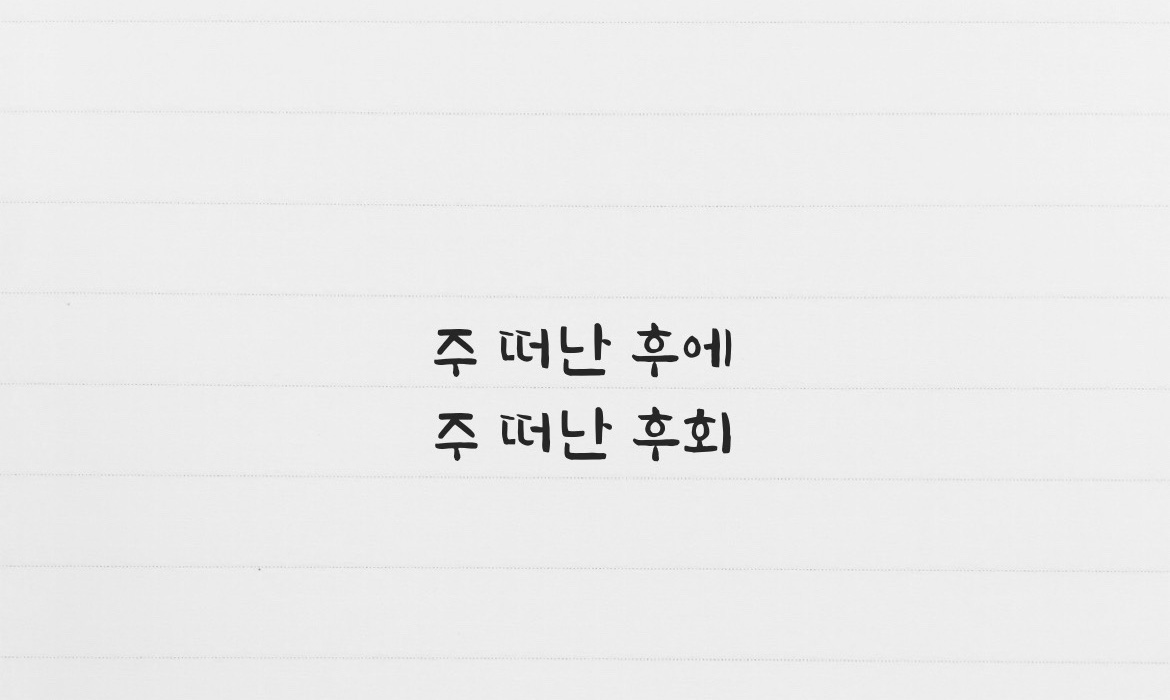 주 떠난 후에
주 떠난 후회